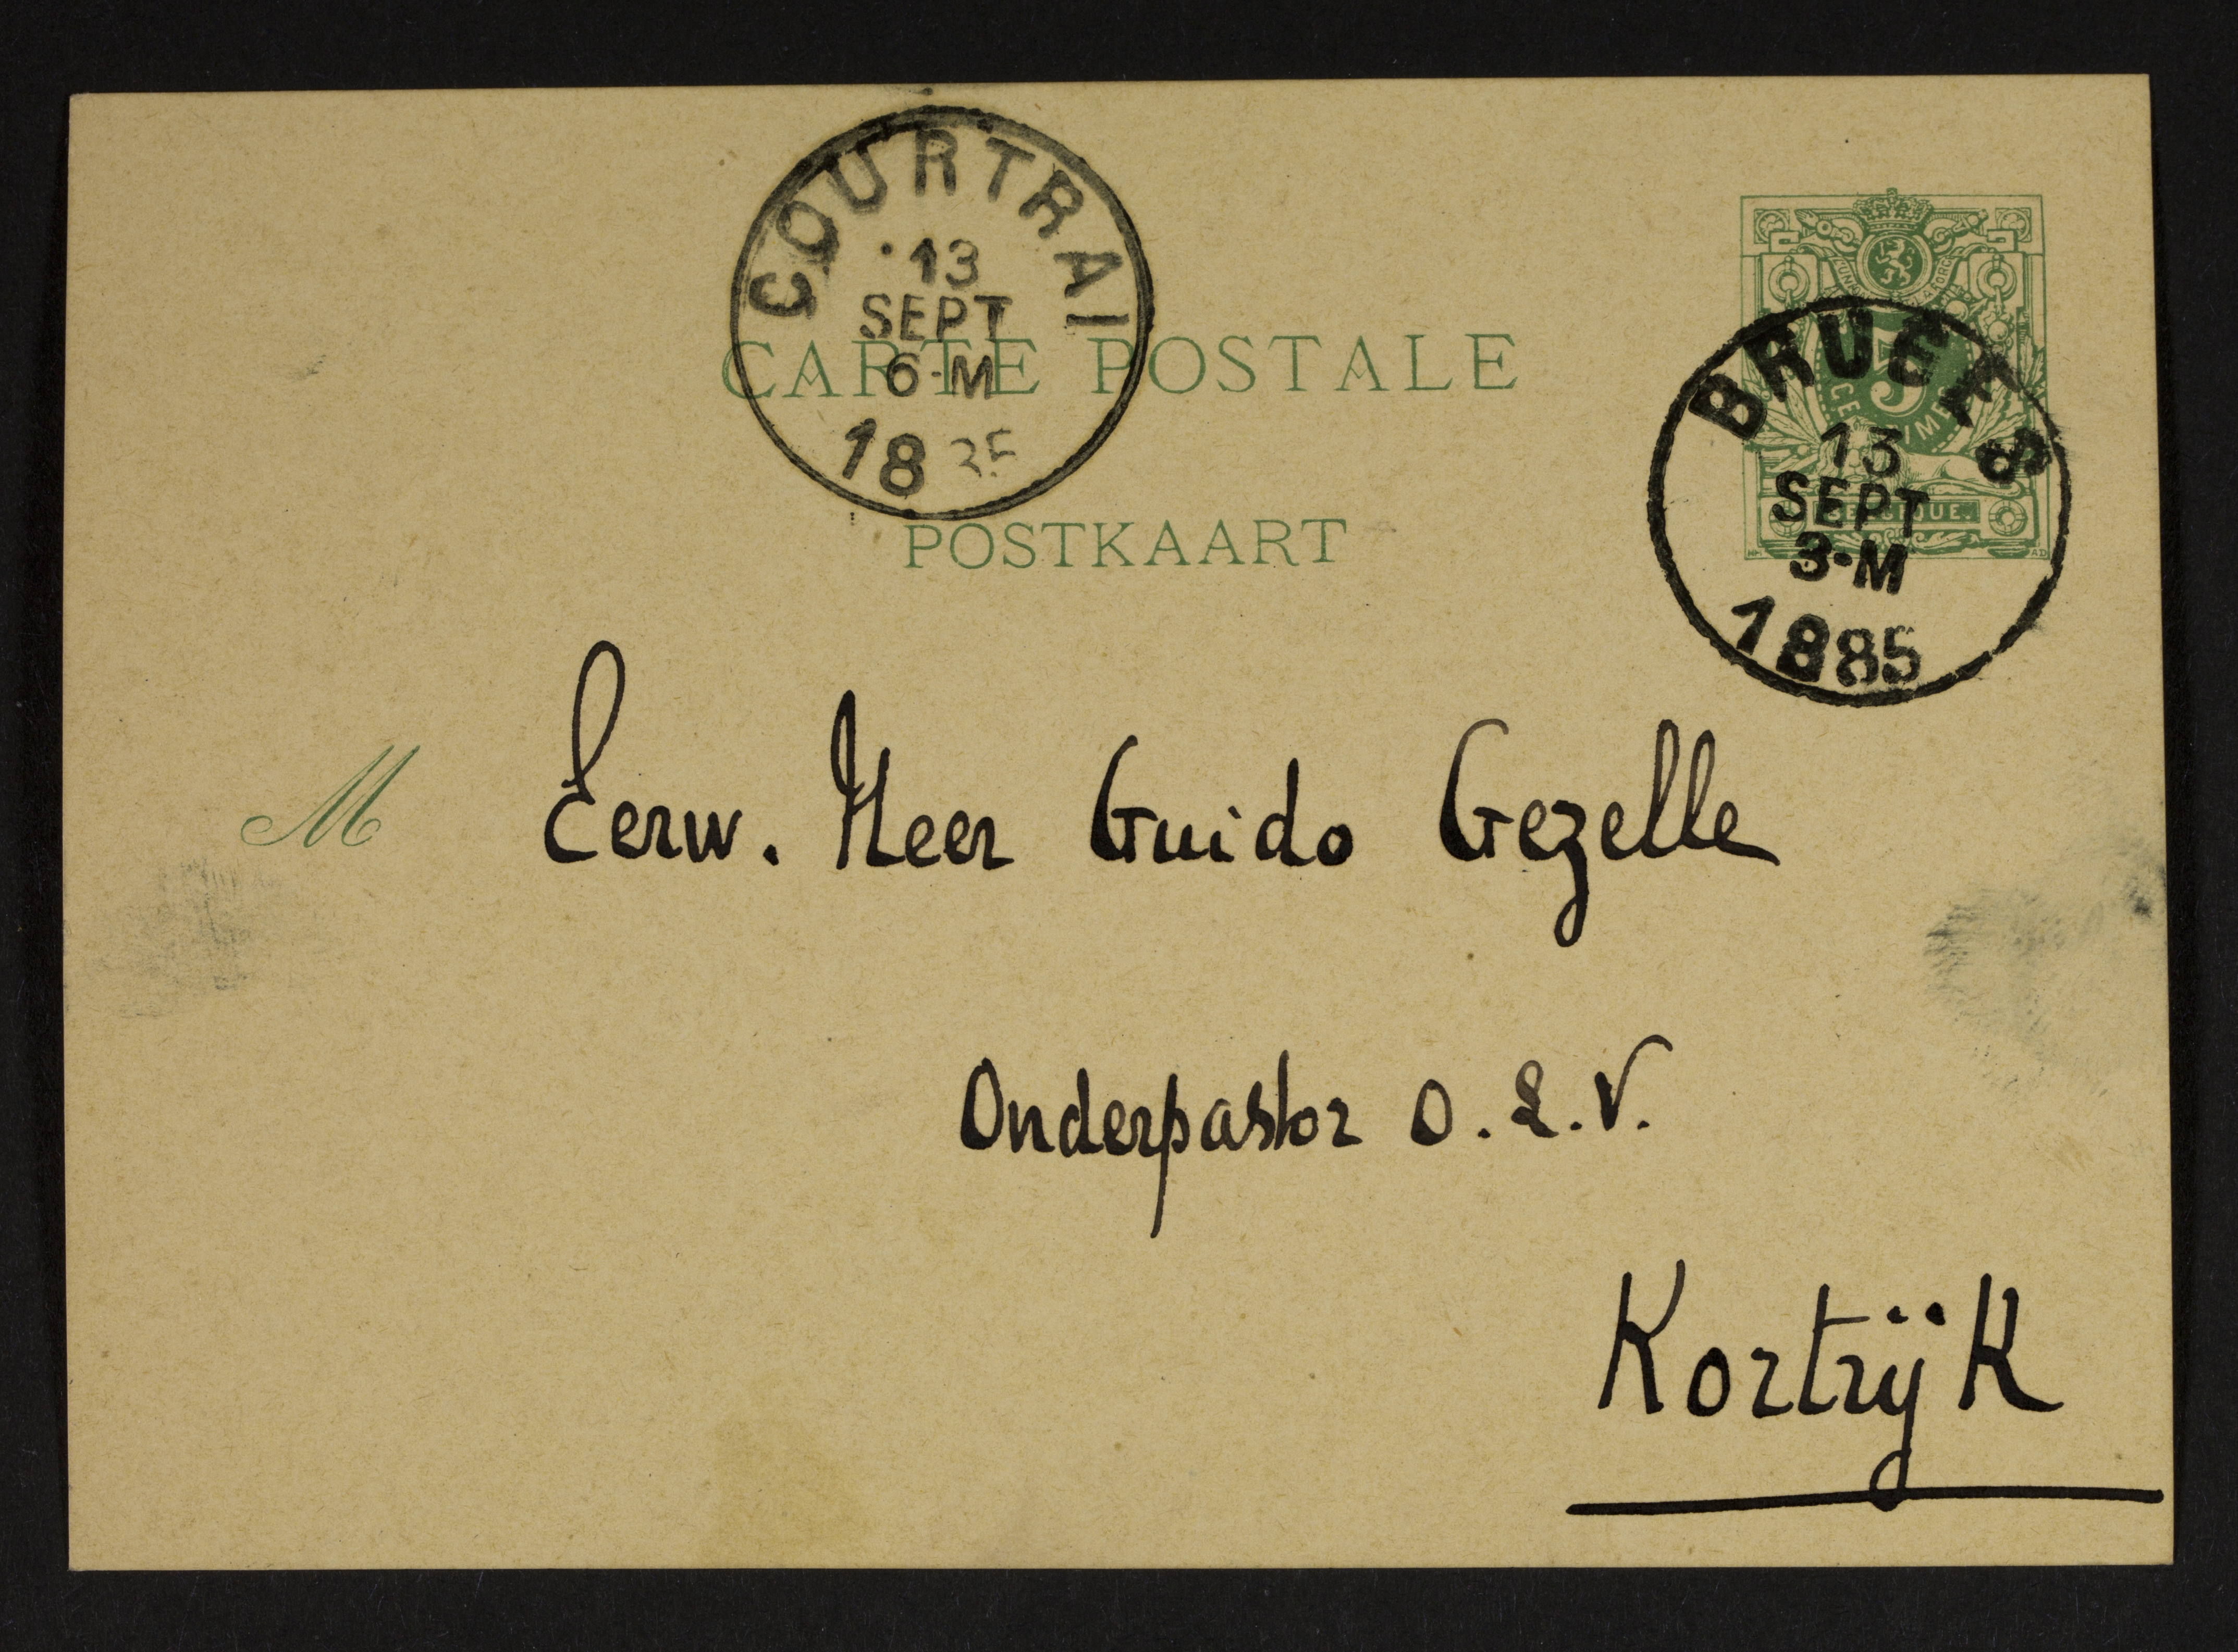 COURTRAI
13
SEPT
6-M
18 85
CARTE POSTALE
POSTKAART
5
BRUGES
13
SEPT
3-M
1885
M Eerw. Heer Guido Gezelle
Onderpastor O. L. V.
Kortrijk